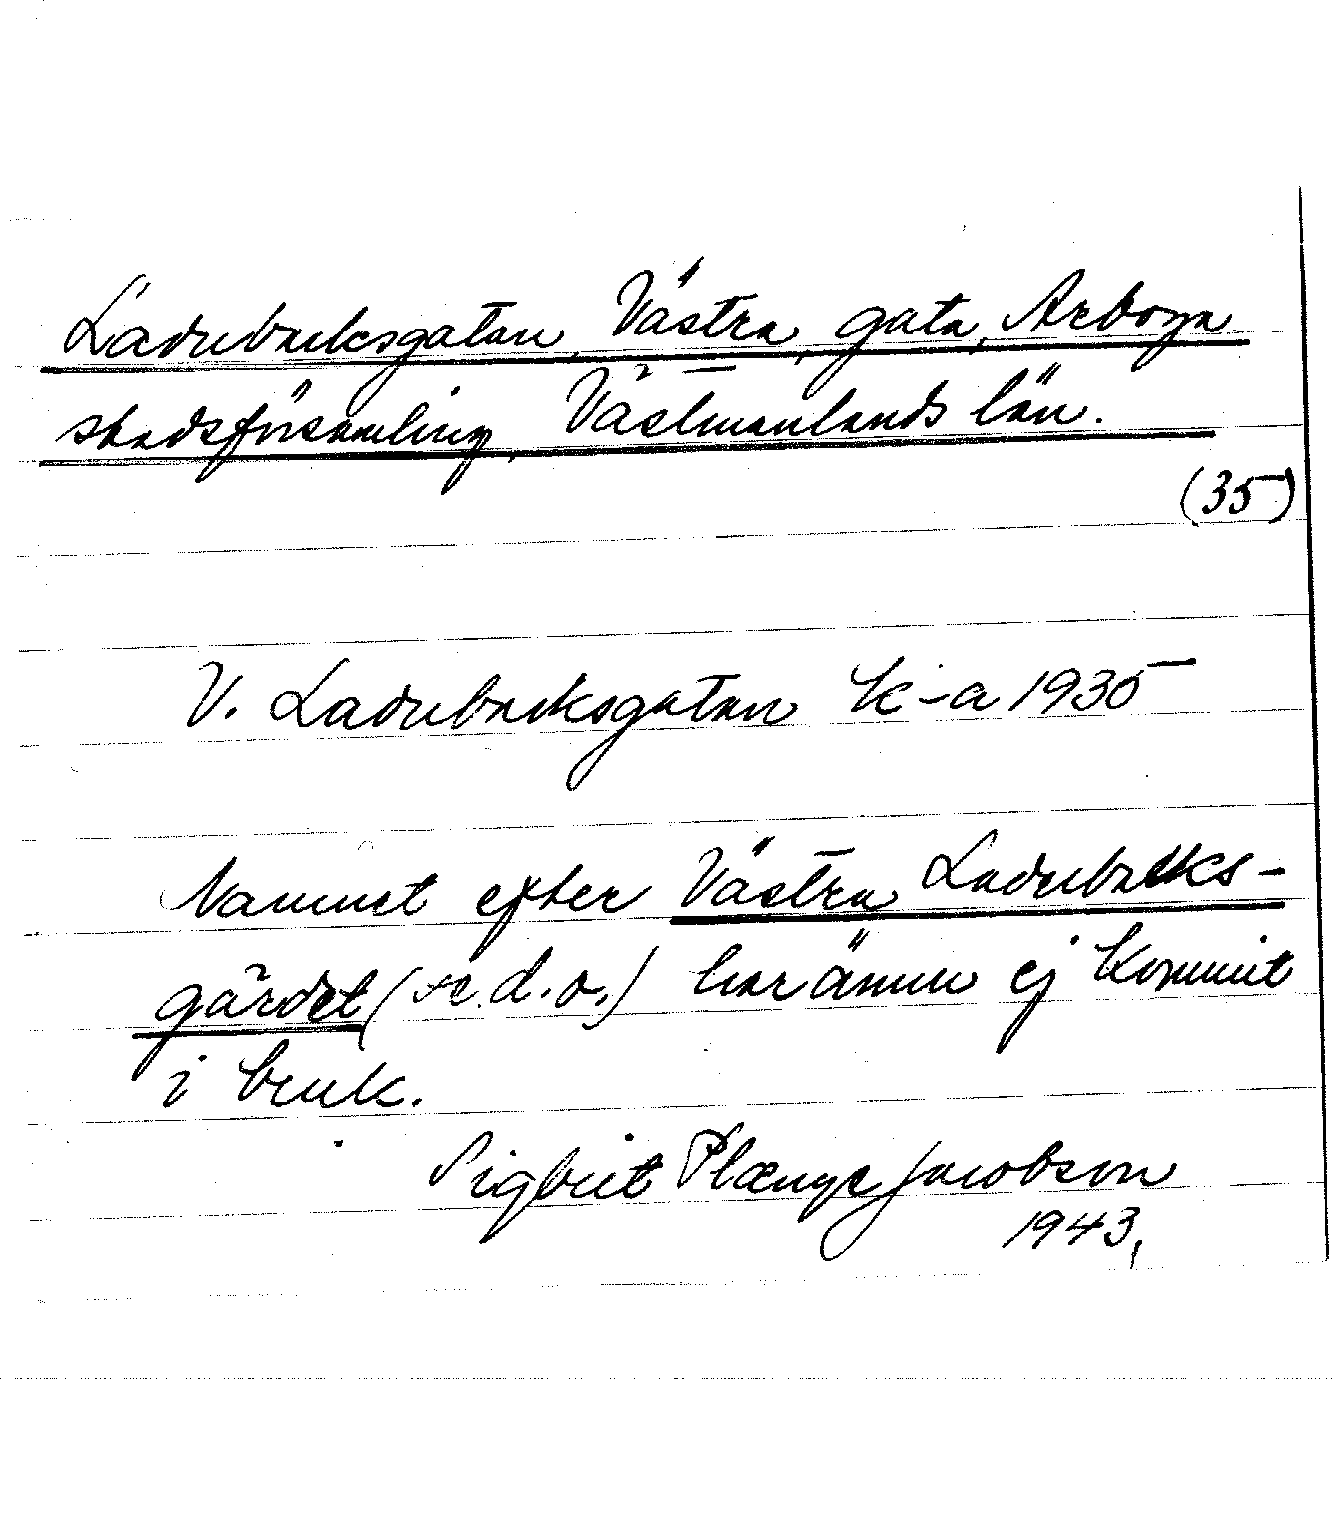 Ladubacksgatan, Västra, gata, Arboga
stadsförsamling, Västmanlands län.
(35)
V. Ladubacksgatan k-a 1935
Namnet efter Västra Ladubacks-
gärdet (se d.o.) har ännu ej kommit
i bruk.
Sigbrit Plænge Jacobson
1943,